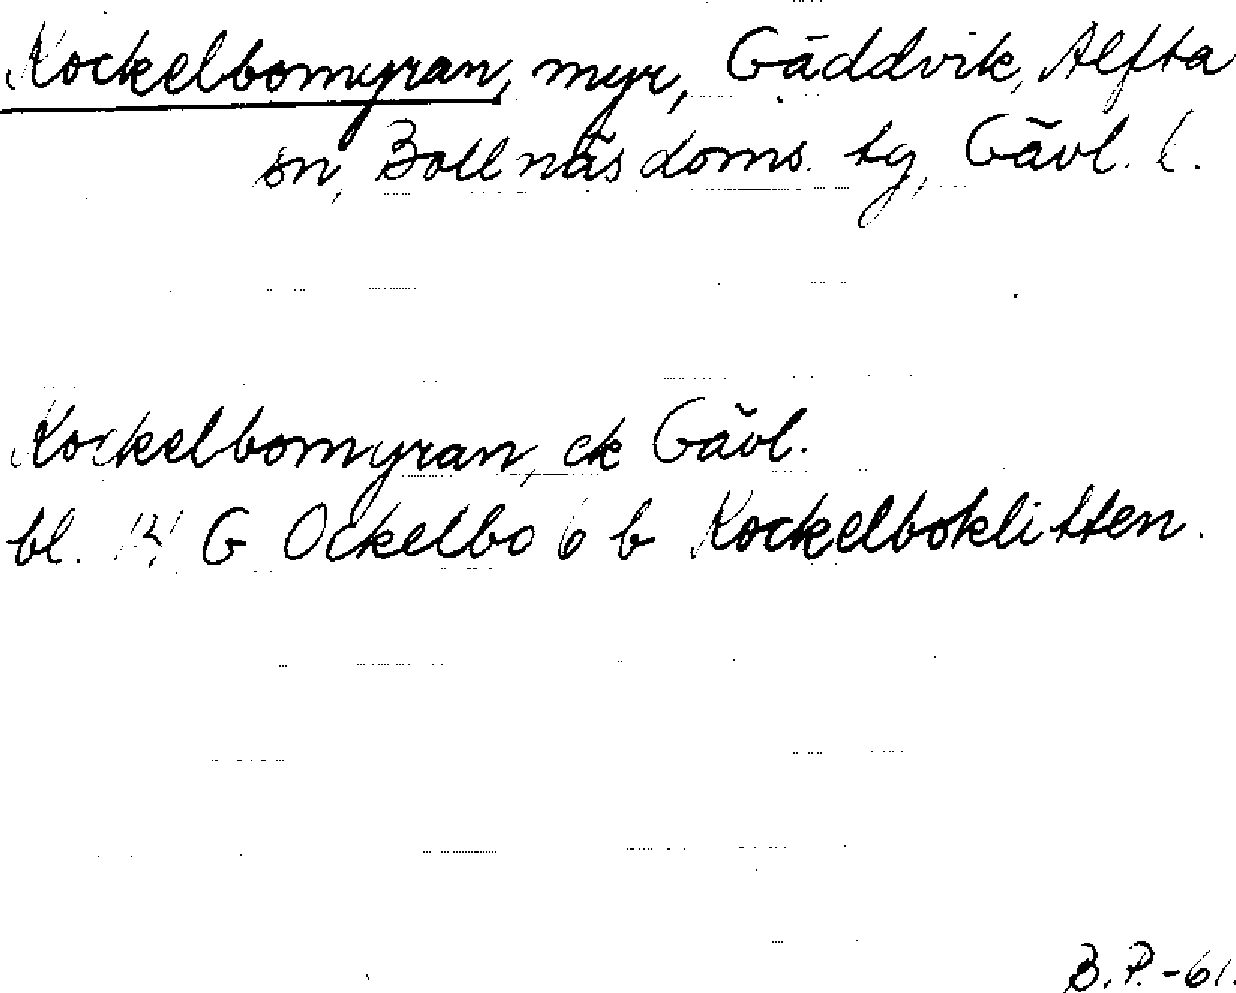 Kockelbomyran, myr, Gäddvik, Alfta
sn, Bollnäs doms. tg, Gävl. l.
Kockelbomyran, ek Gävl.
bl. 14 G Ockelbo 6 b Kockelboklitten.
B.P.-61.